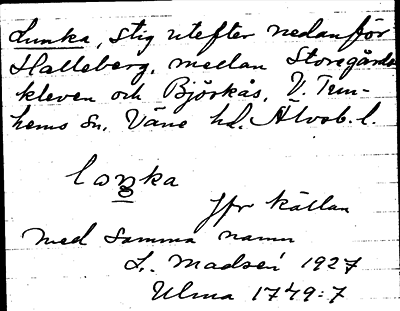 Lunka, stig utefter nedanför
Halleberg, mellan Storegårds-
kleven och Björkås, V. Tun-
hems sn. Väne hd. Älvsb. l.
loŋka
Jfr källan
med samma namn
L. Madsén 1927
Ulma 1749:7